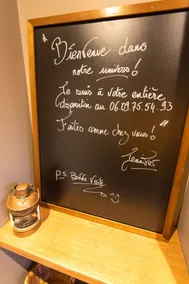 "Bienvenue dans
notre univers!
Je suis à votre entière
disposition au 06.09.75.54.93
Faites comme chez vous!"
Jennifer
P.S. Bonne Visite